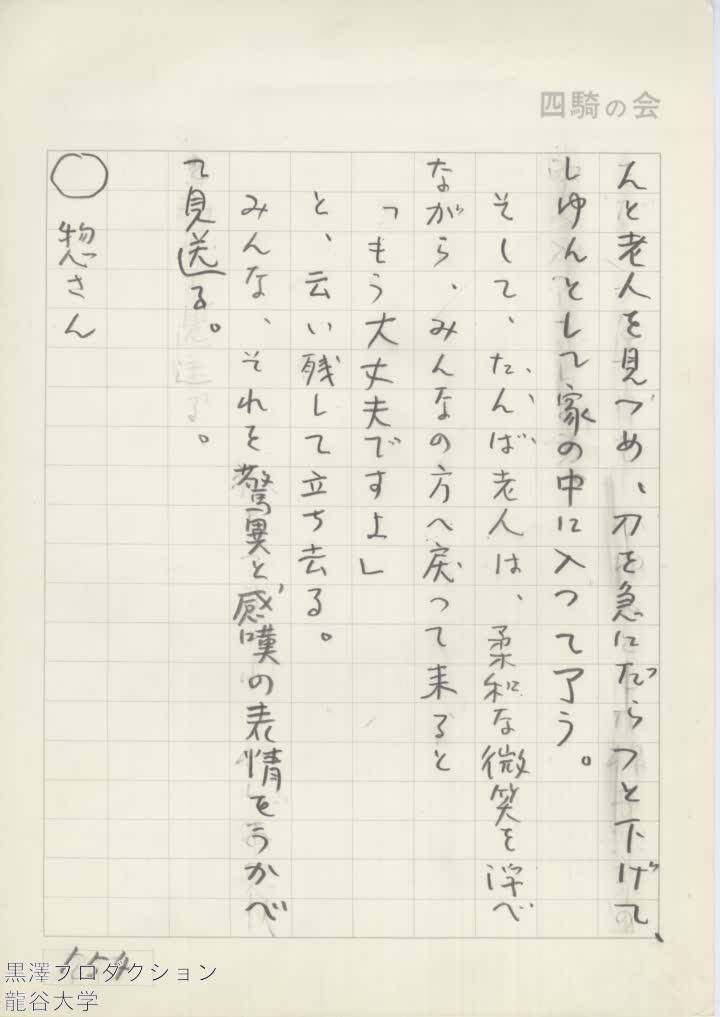 四騎の会
んと老人を見つめ、刀を急にだらっと下げて、
しゅんとして家の中に入って了う。
そして、たんば老人は、柔和な微笑を浮べ
ながら、みんなの方へ戻って来ると
「もう大丈夫ですよ」
と、云い残して立ち去る。
みんな、それを驚異と感嘆の表情をうかべ
て見送る。
○惣さん
黒澤プロダクション
龍谷大学